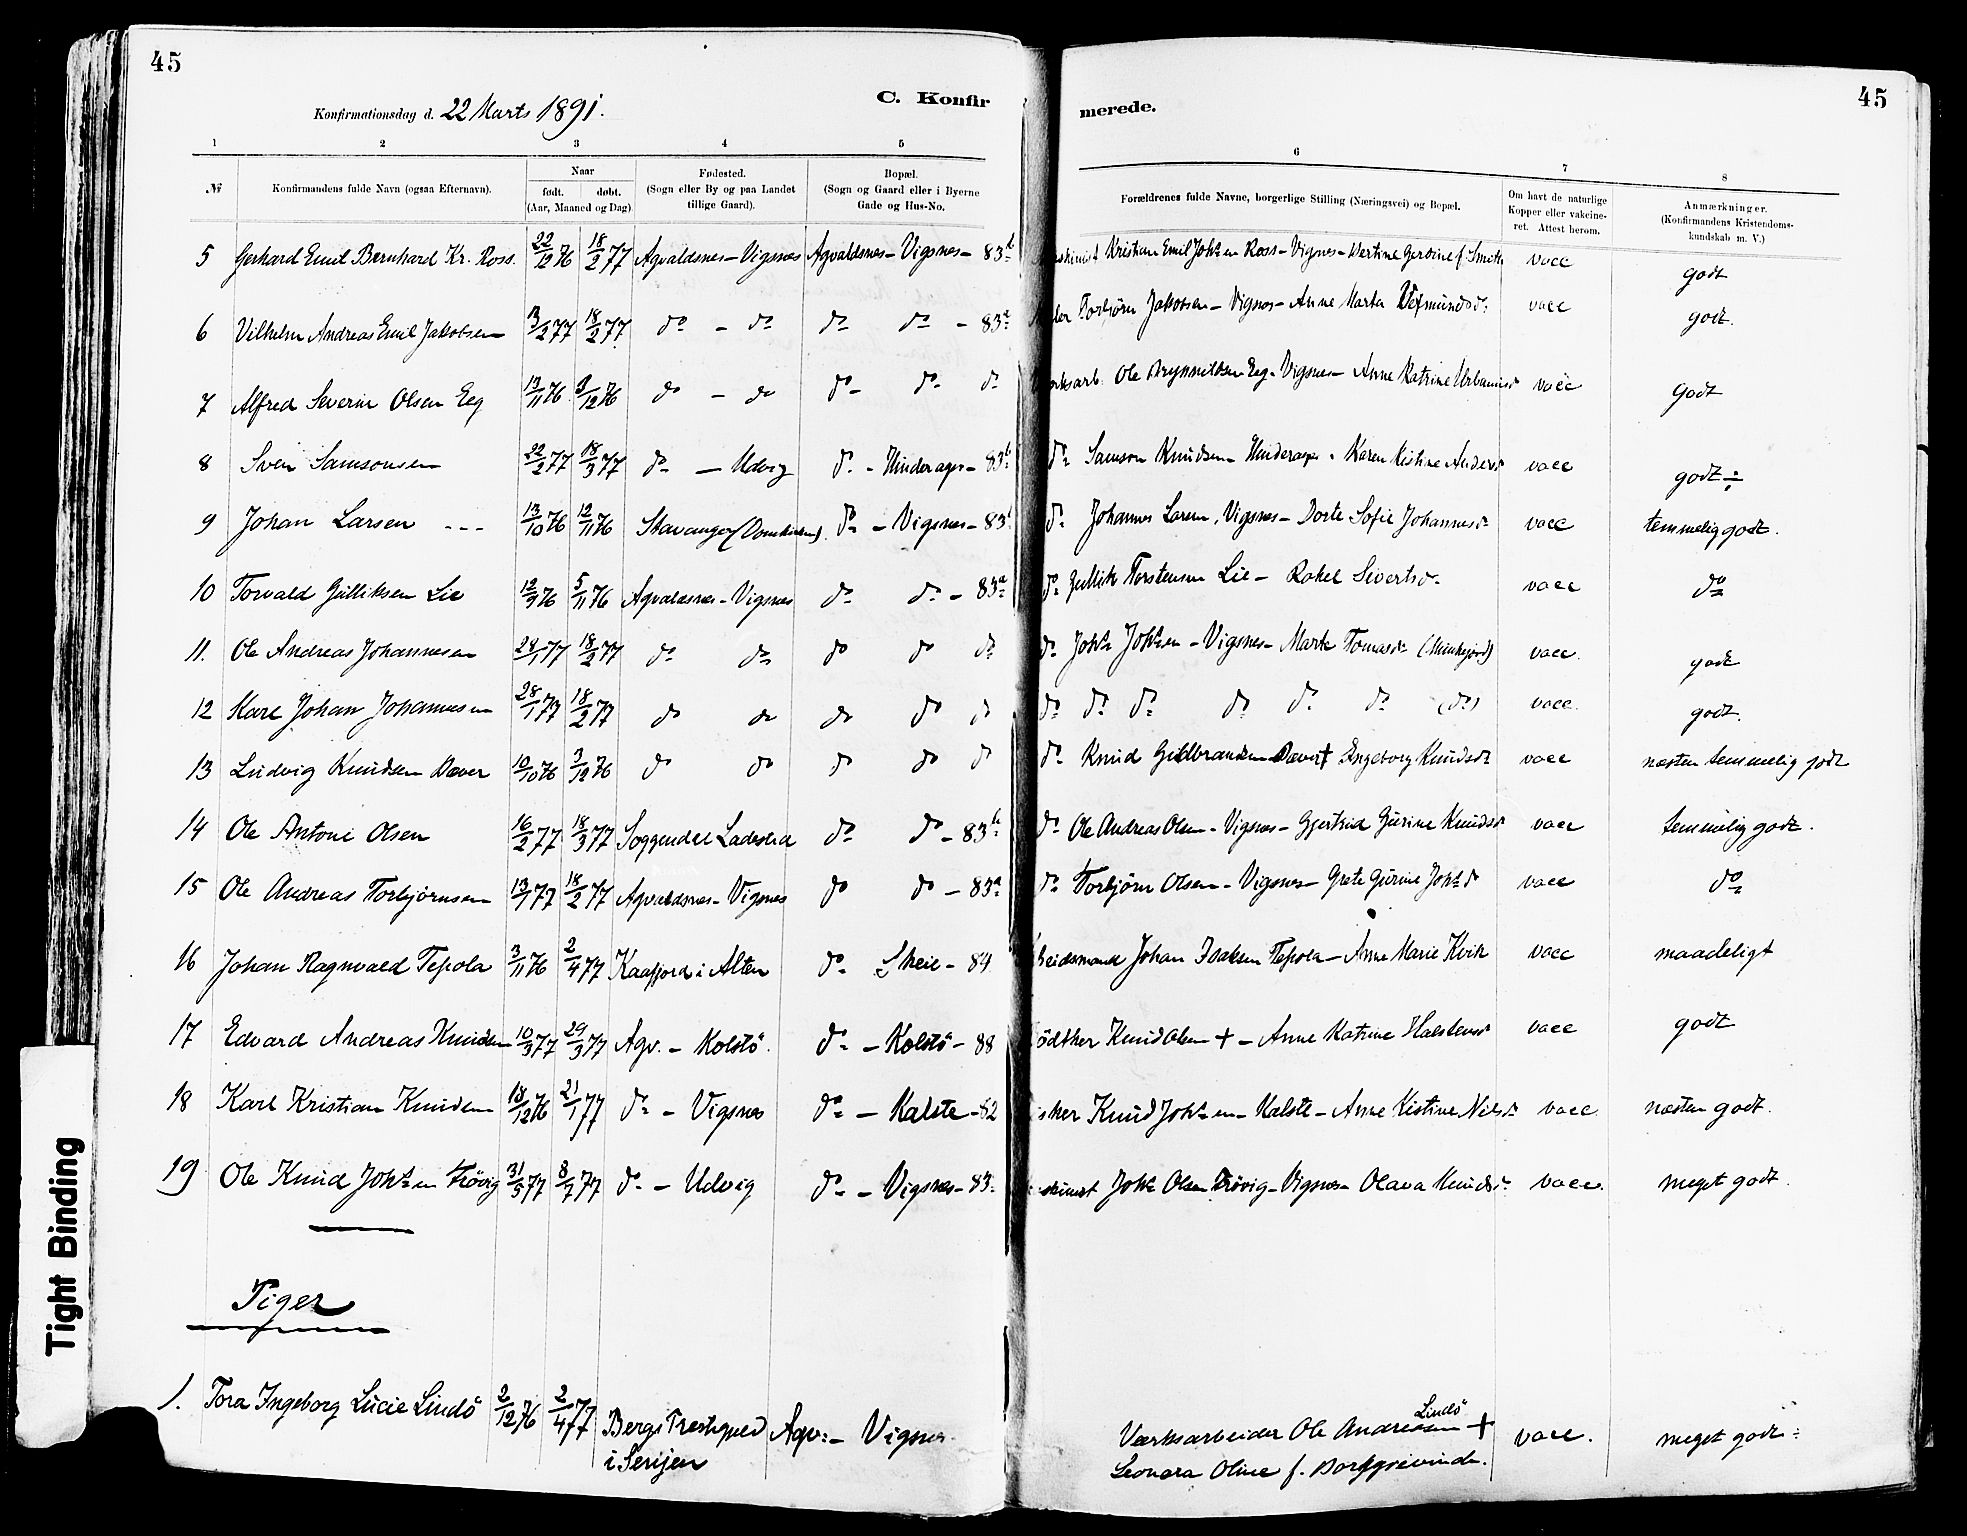 45
Konfirmationsdag d. 22 Marts 1891.
C. Konfirmerede.
45
1 2 3 4 5 6 7 8
№ Konfirmandens fulde Navn (ogsaa Efternavn). Naar født. døbt. (Aar, Maaned og Dag) Fødested. (Sogn eller By og paa Landet tillige Gaard). Bopæl. (Sogn og Gaard eller i Byerne Gade og Hus-No. Forældrenes fulde Navne, borgerlige Stilling (Næringsvei) og Bopæl. Om havt de naturlige Kopper eller vakcineret. Attest herom. Anmærkninger. (Konfirmandens Kristendomskundskab m. V.)
5 Gerhard Emil Bernhard Kr. Ross. 22/12 76 18/2 77 Agvaldsnes - Vigsnes Agvaldsnes - Vigsnes - 83 Kristian Emil Johsen Ross - Vigsnes - f. Smith vacc godt
6 Vilhelm Andreas Emil Jakobsen 13/2 77 18/2 77 do - do do do - 83a Torbjörn Jakobsen - Vigsnes - Anne Marta vacc godt.
7 Alfred Severin Olsen Eeg 13/11 76 3/12 76 do - do do - do do Ole Brynnildsen Eeg - Vigsnes - Anne Katrine vacc Godt
8 Sven Samsonsen 22/2 77 18/3 77 do - Udvig do - Hinderager - 83b do Samson Knudsen - Hinderager - Karen Kistine Andersd vacc godt ÷
9 Johan Larsen --- 13/10 76 12/11 76 Stavanger (Domkirken) do - Vigsnes - 83 do Johannes Larsen, Vigsnes - Dorte Sofie Johannesd vacc temmelig godt.
10 Torvald Gulliksen Lie 12/9 76 5/11 76 Agvaldsnes - Vigsnes do do - 83a do Gullik Torstensen Lie - Rakel Sivertsd vacc do
11. Ole Andreas Johannesen 28/1 77 18/2 77 do do do do do do Johs Johsen - Vigsnes - Marta Tomasd vacc. godt
12 Karl Johan Johannesen 28/1 77 18/2 77 do do do do do do do do do do do (do) vacc. godt.
13 Ludvig Knudsen Dæver 10/10 76 3/12 76 do do do do do do Knud Guldbrandsen Dæver † Ingeborg Knudsd vacc næsten temmelig godt
14 Ole Antoni Olsen 16/2 77 18/3 77 Soggendal Ladested do do - 83b do Ole Andreas Olsen - Vigsnes - Gjertrud Gurine Knudsd vacc temmelig godt.
15 Ole Andreas Torbjörnsen 13/1 77 18/2 77 Agvaldsnes - Vigsnes do do - 83a do Torbjörn Olsen - Vigsnes - Grete Gurine Johsd vacc do
16 Johan Ragnvald Tepola 3/11 76 2/4 77 Kaafjord i Alten do - - 84 beidsmand Johan Isaksen Tepola - Anne Marie Kvik vacc maadeligt
17 Edvard Andreas Knudsen 10/3 77 29/3 77 Agv. - Kolstö. do - Kolstö - 88 ödtker Knud Olsen † - Anne Katrine Halstensd vacc godt
18 Karl Kristian Knudsen 18/12 76 21/1 77 do - Vigsnes do - Kalste - 82 isker Knud Johsen - Kalste - Anne Kistine Nilsd vacc næsten godt.
19 Ole Knud Johsen Trövig 31/5 77 8/7 77 do - Udvig do - Vigsnes - 83 Johs Olsen Trövig - Vigsnes - Olava Knudsd vacc. meget godt.
Piger
1. Tora Ingeborg Lucie Lindö 2/12 76 2/4 77 Bergs Prestegjeld Agv: - Vigsnes Værksarbeider Ole Andreasen Lindö † vacc. meget godt
i Senjen Leonora Oline f.
Tight Binding